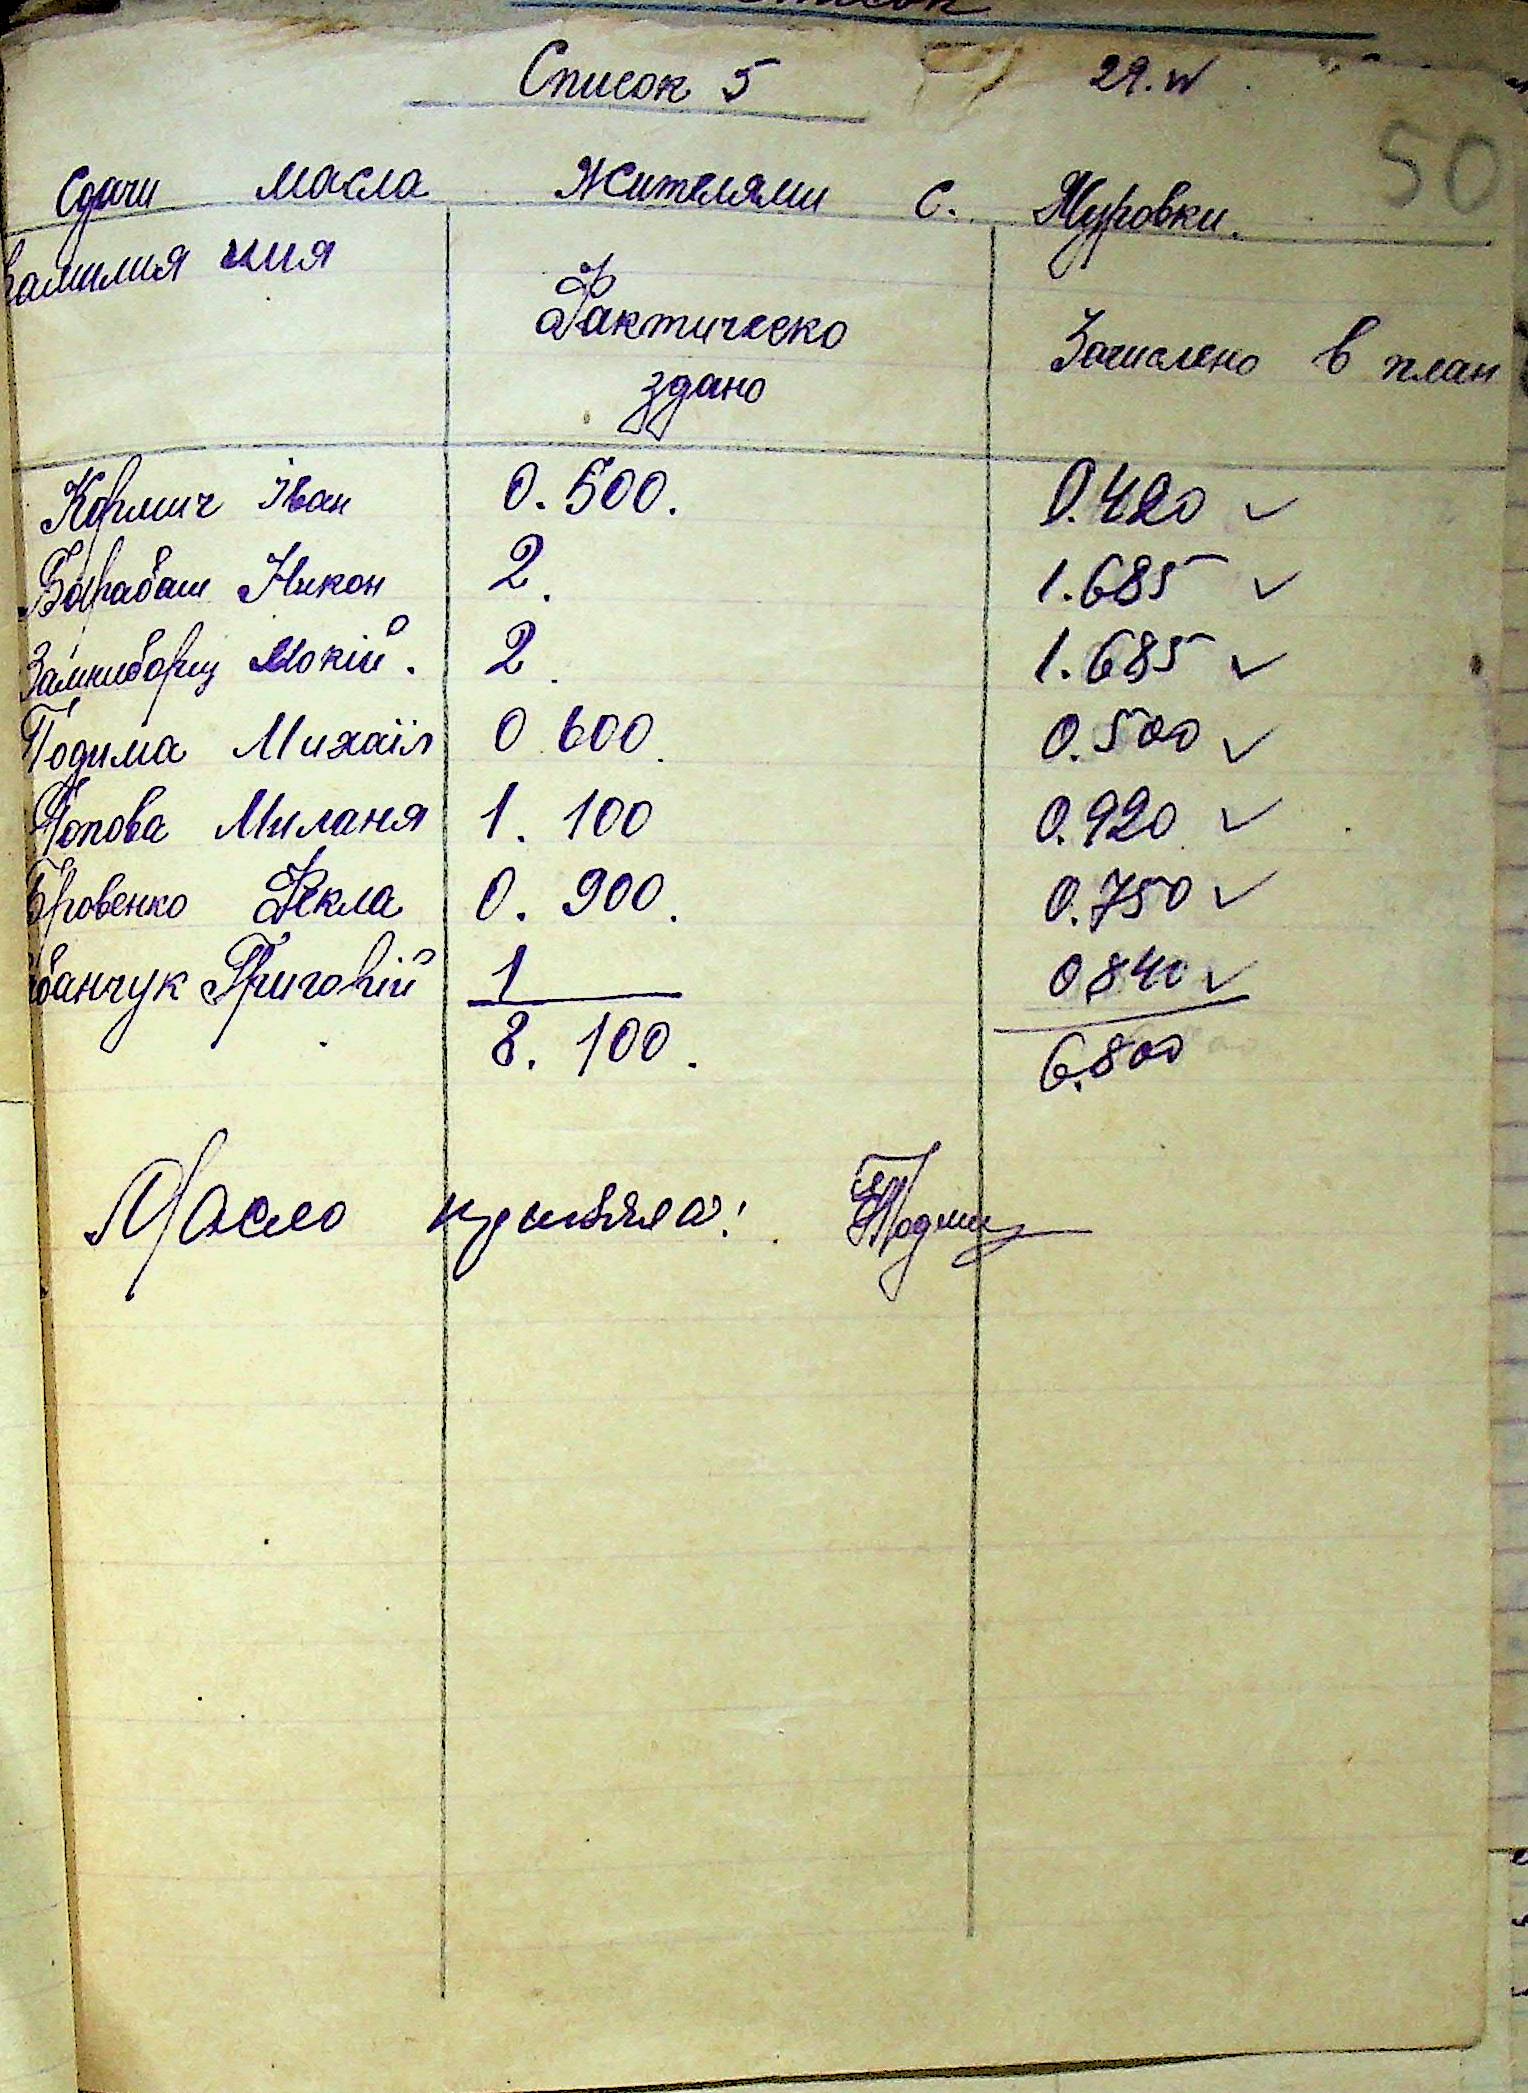 Список
Список 5 29.IV
50
Сдачи масла жителями с. Журовки.
Фамилия имия Фактическо здано Зачислено в план
Кормич Іван 0.500. 0.420 ✓
Барабаш Никон 2. 1.685 ✓
Замниборщ Мокій. 2. 1.685 ✓
Подима Михаїл 0 600. 0.500 ✓
Попова Миланя 1. 100 0.920 ✓
Бровенко Фекла 0. 900. 0.750 ✓
банчук Григорій 1 0.840 ✓
8. 100. 6.800
Масло приняла: